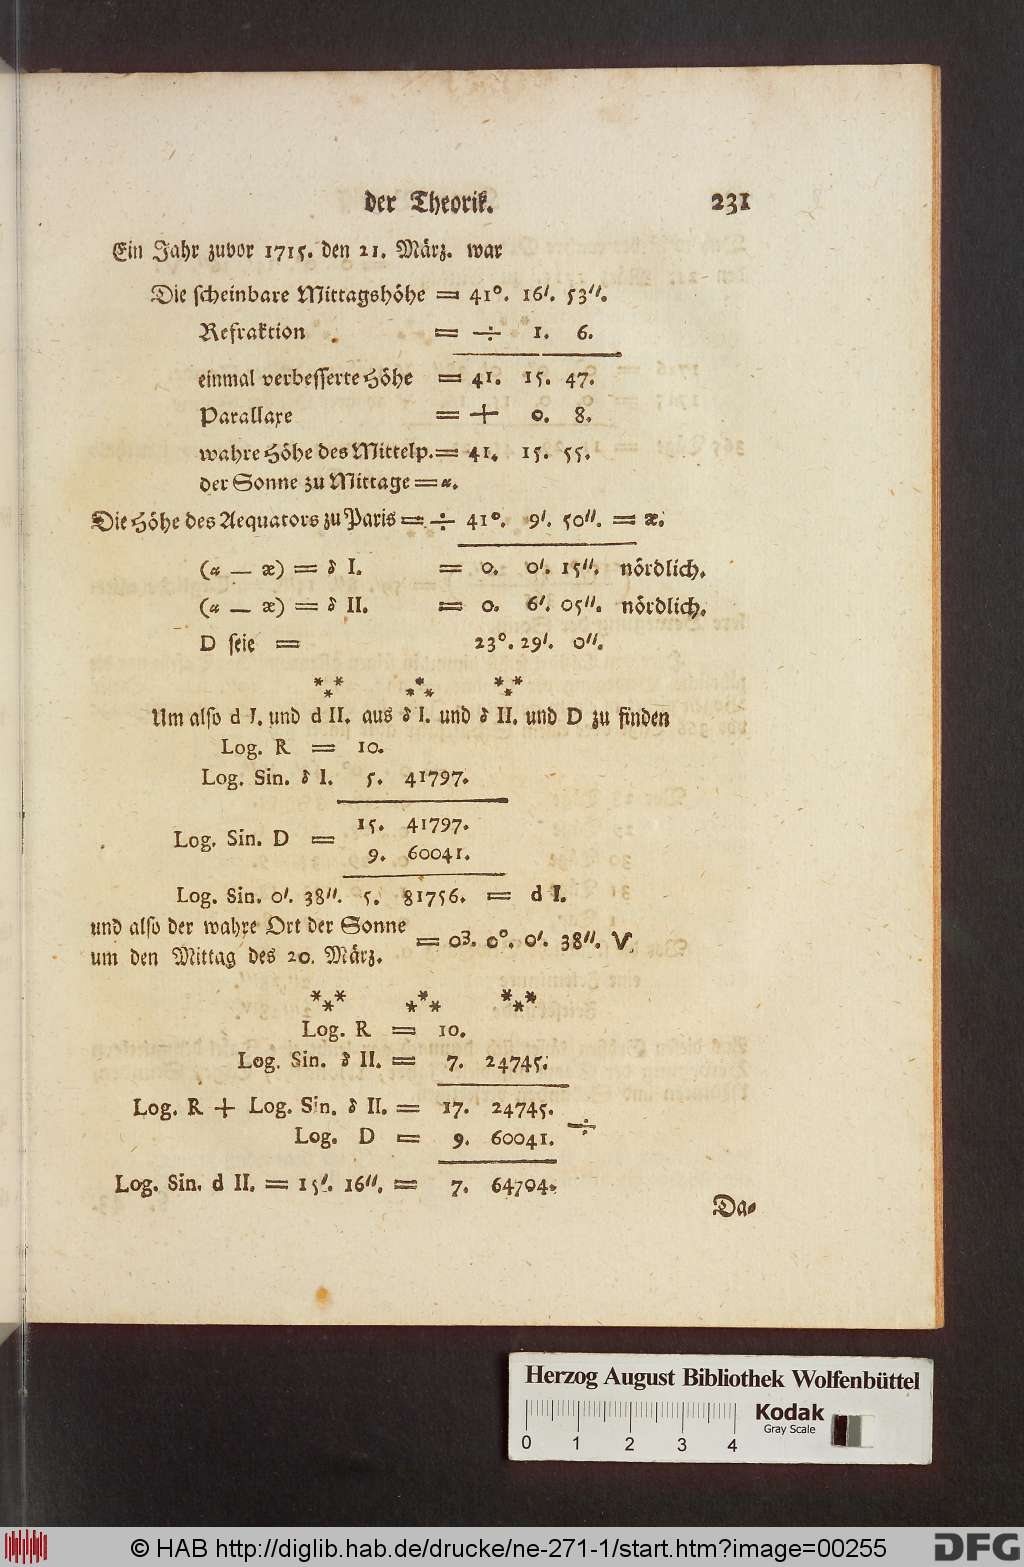 der Theorik. 231
Ein Jahr zuvor 1715. den 21. März. war
Die scheinbare Mittagshöhe = 41°. 16′. 53″.
Refraktion = ÷ 1. 6.
einmal verbesserte Höhe = 41. 15. 47.
Parallaxe = + 0. 8.
wahre Höhe des Mittelp. = 41. 15. 55.
der Sonne zu Mittage = α.
Die Höhe des Aequators zu Paris = ÷ 41°. 9′. 50″. = æ.
(α — æ) = δ I. = 0. 0′. 15″. nördlich.
(α — æ) = δ II. = 0. 6′. 05″. nördlich.
D seie = 23°. 29′. 0″.
*** *** ***
Um also d I. und d II. aus δ I. und δ II. und D zu finden
Log. R = 10.
Log. Sin. δ I. 5. 41797.
15. 41797.
Log. Sin. D =
9. 60041.
Log. Sin. 0′. 38″. 5. 81756. = d I.
und also der wahre Ort der Sonne
um den Mittag des 20. März. = 0³. 0°. 0′. 38″. V.
*** *** ***
Log. R = 10.
Log. Sin. δ II. = 7. 24745.
Log. R + Log. Sin. δ II. = 17. 24745.
Log. D = 9. 60041. ÷
Log. Sin. d II. = 15′. 16″. = 7. 64704.
Da-
Herzog August Bibliothek Wolfenbüttel
Kodak
Gray Scale
0 1 2 3 4
© HAB http://diglib.hab.de/drucke/ne-271-1/start.htm?image=00255
DFG